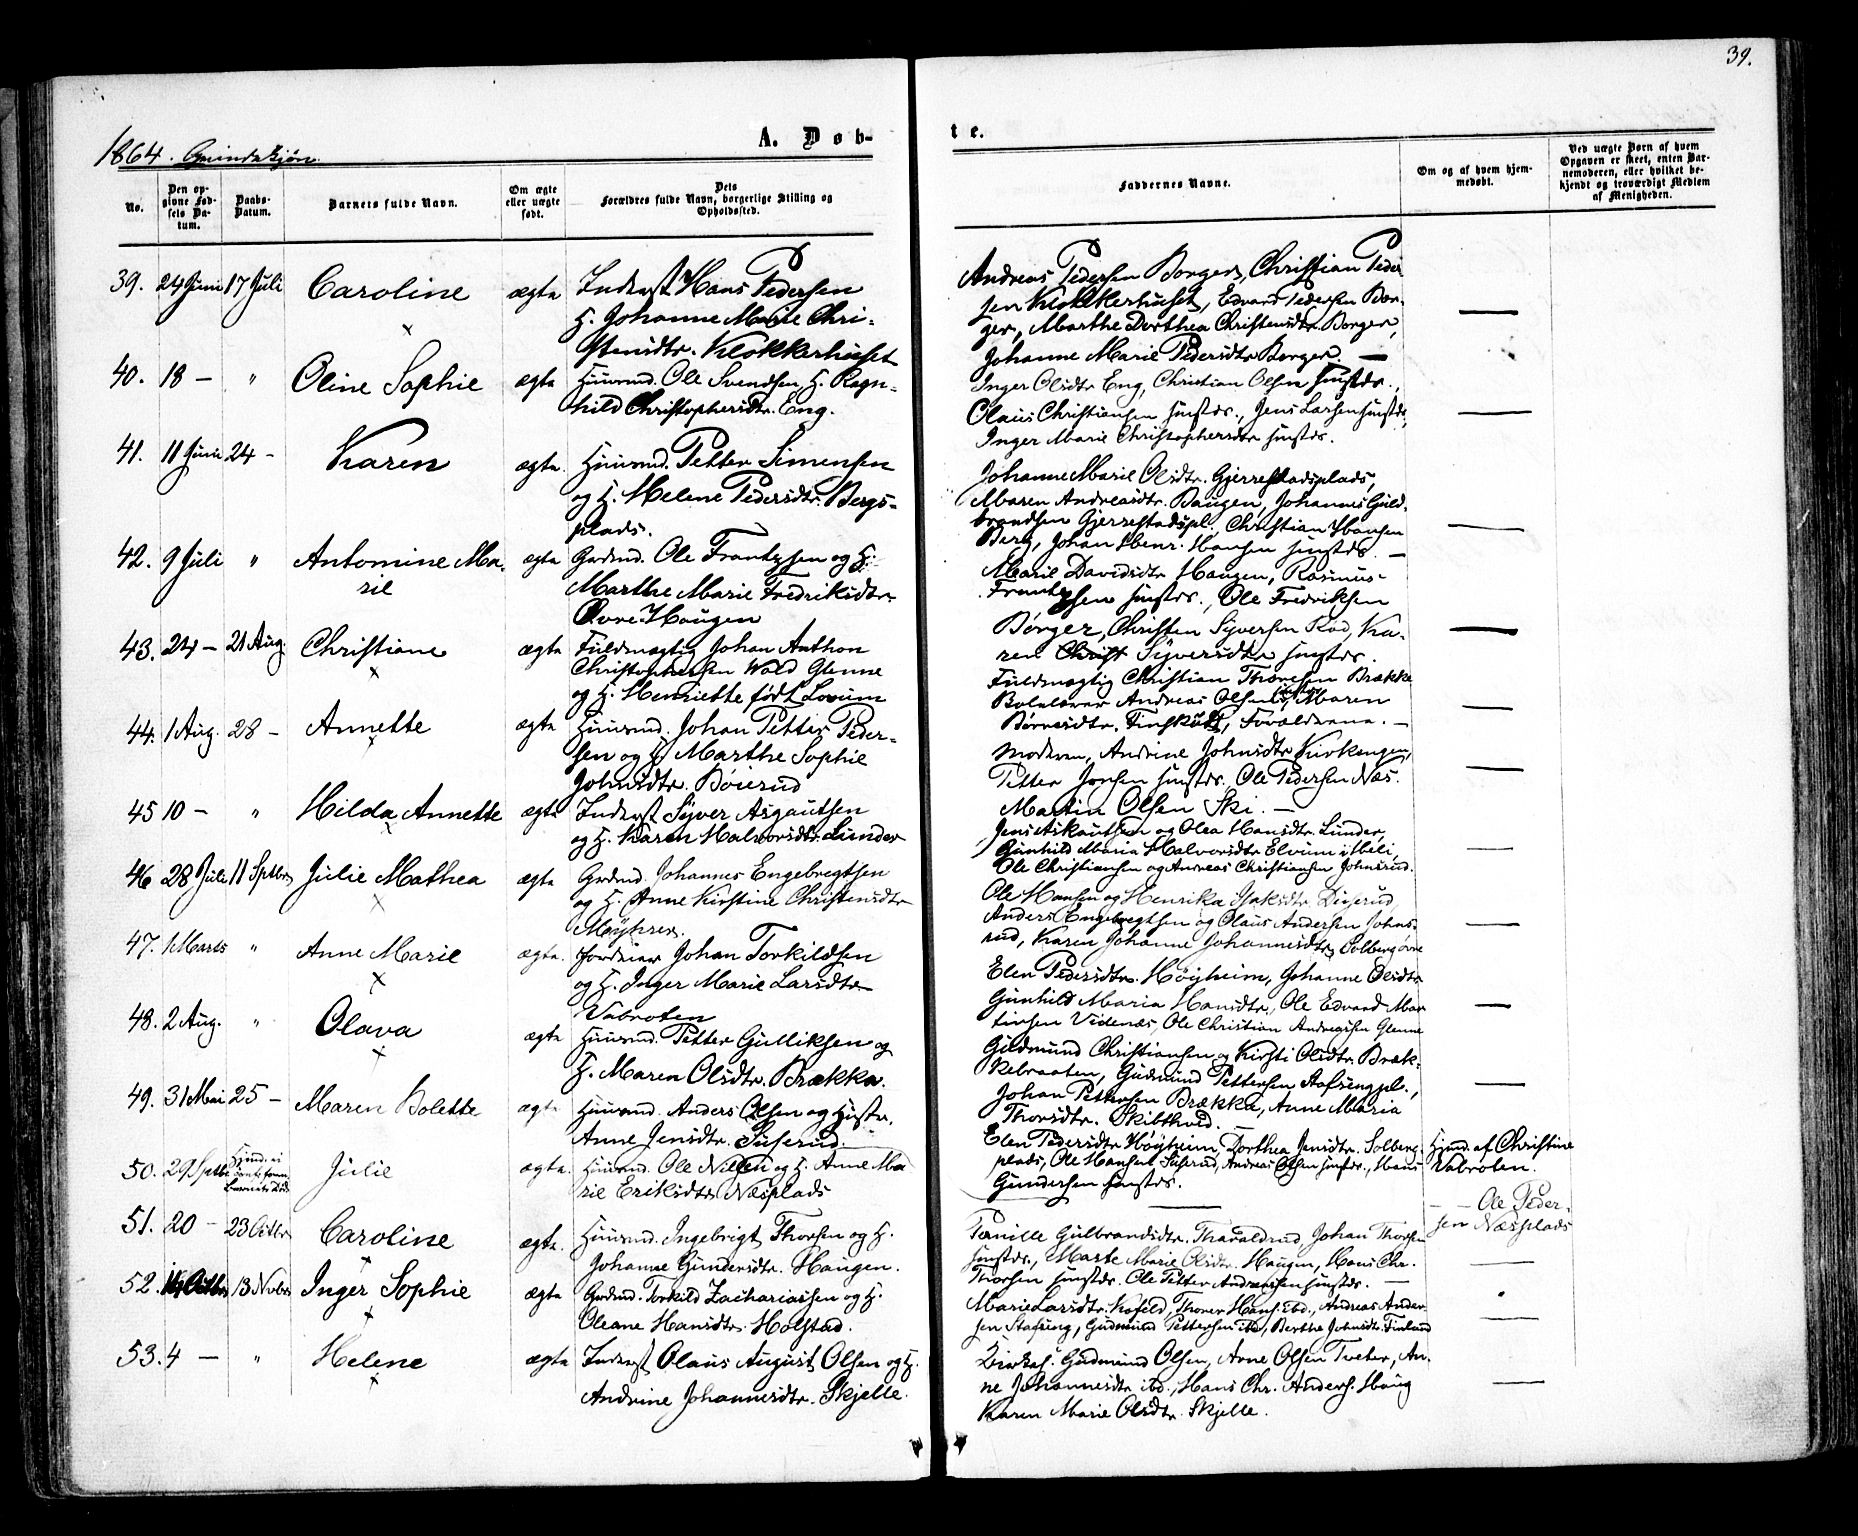 39.
1864. Qvindekjøn.
A. Døb-
te.
No.
Den op-
givne Fød-
sels Da-
tum.
Daabs-
Datum.
Barnets fulde Navn.
Om ægte
eller uægte
født.
Dets
Forældres fulde Navn, borgerlige Stilling og
Opholdssted.
Faddernes Navne.
Om og af hvem hjem-
medøbt.
Ved uægte Børn af hvem
Opgaven er skeet, enten Bar-
nemoderen, eller hvilket be-
kjendt og troværdigt Medlem
af Menigheden.
39. 24 Juni 17 Juli Caroline ægte Inderst Hans Pedersen
H. Johanne Marie Chri-
stensdtr. Klokkerhuset
Andreas Pedersen Borger, Christian Peder
sen Klokkerhuset, Edvard Pedersen Bør-
ger, Marthe Dorthea Christensdtr. Borger,
Johanne Marie Pedersdtr Borger. —
40. 18 — " Oline Sophie ægte Huusmd. Ole Svendsen, H. Ragn-
hild Christophersdtr. Eng.
Inger Olsdtr Eng, Christian Olsen sustds.,
Claus Christiansen sustds., Jens Larsen sustds,
Inger Marie Christophersdtr sustds.
41. 11 Juni 24 - Karen ægte. Huusmd. Petter Simensen
og H. Melene Pedersdtr. Bergs-
plads.
Johanne Marie Olsdtr. Gjerrestadsplads,
Maren Andreasdtr. Baugen, Johannes Guld-
brandsen Gjerrestadspl. Christian Hansen
Berg, Johan Henr. Hansen sustds. —
42. 9 Juli " Antomine Ma-
rie
ægte Grdmd. Ole Frantzsen og H.
Marthe Marie Fredriksdtr.
Øvre Haugen
Marie Davidsdtr Haugen, Rasmus
Frantzsen sustds., Ole Fredriksen
Børger, Christen Syversen Rød, Ka-
ren Syversdtr sustds.
43. 24 — 21 Aug. Christiane ægte Fuldmægtig Johan Anthon
Christophersen Wold Glenne
og H. Henriette, født Lorum
Fuldmægtig Christian Thoresen Brække
Andreas Olsen, Maren
Børresdtr. Forældrene. —
44. 1 Aug. 28 — Annette ægte Huusmd. Johan Petter Peder-
sen og H Marthe Sophie
Johnsdtr. Bøierud
Moderen, Andrine Johnsdtr Kirkengen,
Petter Jonsen sustds. Ole Pedersen Næs.
Martin Olsen Ski. —
45 10 — " Hilda Annette ægte Inderst Syver Asgautsen
og H. Karen Halvorsdtr. Lunder
Jens Askautsen og Olea Hansdtr. Lunder,
Gunhild Maria Halvorsdtr Elvum i Heli,
Ole Christiansen og Andreas Christiansen Johnsrud.
46 28 Juli 11 Sptbr Julie Mathea ægte Grdmd. Johannes Engebregtsen
og H. Anne Kirstine Christensdtr
Møyhrer.
Ole Hansen og Henrika Isaksdtr. Diserud,
Anders Engebregtsen og Olaus Andersen Johns-
rud, Karen Johanne Johannesdtr Solberg øvre
47. 1 Marts " Anne Marie ægte. Johan Torkildsen
og H. Inger Marie Larsdtr.
Vabroten
Elen Pedersdtr. Høyheim, Johanne Olsdtr
Gunhild Maria Hansdtr, Ole Edvard Mar
tinsen Videnæs, Ole Christian Andresen Glenne
48. 2 Aug. " Olava ægte Huusmd. Petter Gulliksen og
H. Maren Olsdtr. Brække.
Gudmund Christiansen og Kirsti Olsdtr. Bræk-
kebraaten, Gudmund Pettersen Stafsengpl.,
Johan Pettersen Brække, Anne Maria
Thorsdtr. Skibthved. —
49. 31 Mai 25 — Maren Bolette ægte Huusmd. Anders Olsen og Hustr.
Anne Jensdtr. Suserud.
Elen Pedersdtr Høyheim, Dorthea Jensdtr. Solberg-
plads, Ole Hansen Suserud, Andreas Olsen sustds., Hans
Gundersen sustds.
Hjmd. af Christine
Vabroten.
50. 29 Sptbr Julie ægte. Huusmd. Ole Nilsen og H. Anne Ma
rie Eriksdtr Næsplads
— — Ole Peder-
sen Næsplads
51. 20 — 23 Octbr Caroline ægte. Huusmd. Ingebrigt Thorsen og H.
Johanne Gundersdtr. Haugen.
Pernille Gulbrandsdtr. Tharaldrud, Johan Thorsen
sustds., Marte Marie Olsdtr. Haugen, Hans Chr.
Thorsen sustds. Ole Petter Andresen sustds. —
52. 14 Octbr 13 Novbr Inger Sophie ægte Grdmd. Torkild Zachariassen og H.
Oleane Hansdtr. Holstad.
Marie Larsdtr. Kofeld, Thorer Hans. ibd., Andreas Ander-
sen Stafseng, Gudmund Pettersen ibd, Berthe Johnsdtr. Finland
53. 4 — " Helene ægte Inderst Olaus August Olsen og H.
Andrine Johannesdtr. Skjelle.
Gudmund Olsen, Arne Olsen Tveter, An-
ne Johannesdtr ibd., Hans Chr. Anders. Haug
Karen Marie Olsdtr. Skjelle.